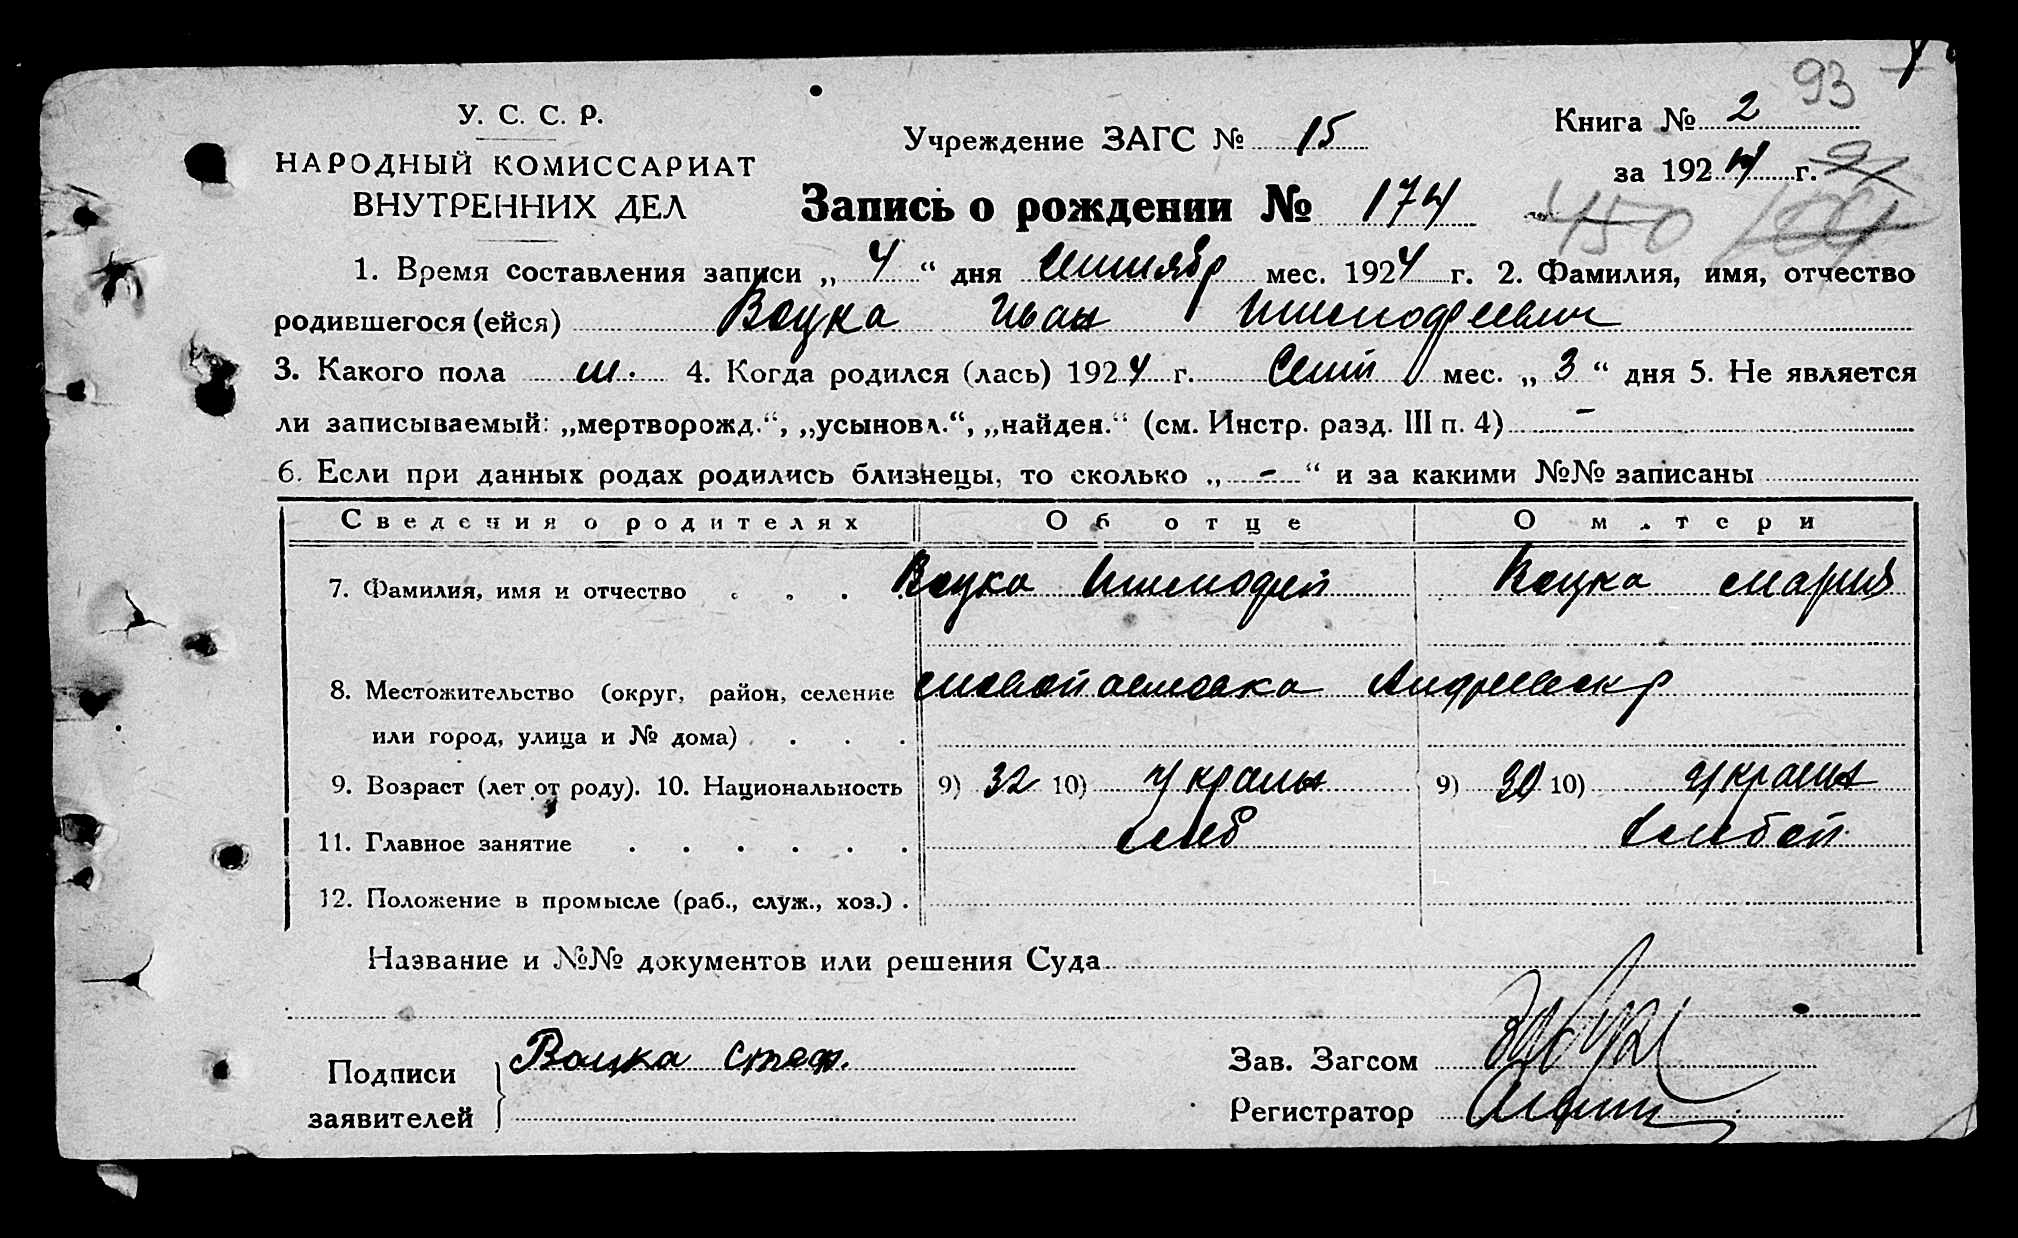 93
У. С. С. Р.
НАРОДНЫЙ КОМИССАРИАТ
ВНУТРЕННИХ ДЕЛ
Учреждение ЗАГС № 15
Книга № 2
за 1924 г.
Запись о рождении № 174
450
1. Время составления записи „ 4 “ дня Сентябр мес. 1924 г. 2. Фамилия, имя, отчество
родившегося (ейся) Воцка Иван
3. Какого пола м. 4. Когда родился (лась) 1924 г. Сент мес. „ 3 “ дня 5. Не является
ли записываемый: „мертворожд.“, „усыновл.“, „найден.“ (см. Инстр. разд. III п. 4) -
6. Если при данных родах родились близнецы, то сколько „ - “ и за какими №№ записаны
Сведения о родителях Об отце О матери
7. Фамилия, имя и отчество . . . Воцка Воцка Мария
8. Местожительство (округ, район, селение
или город, улица и № дома) . . . .
9. Возраст (лет от роду). 10. Национальность 9) 32 10) Украин 9) 30 10) Украин
11. Главное занятие . . . . . .
12. Положение в промысле (раб., служ., хоз.) .
Название и №№ документов или решения Суда
Подписи Воцка Зав. Загсом
заявителей Регистратор